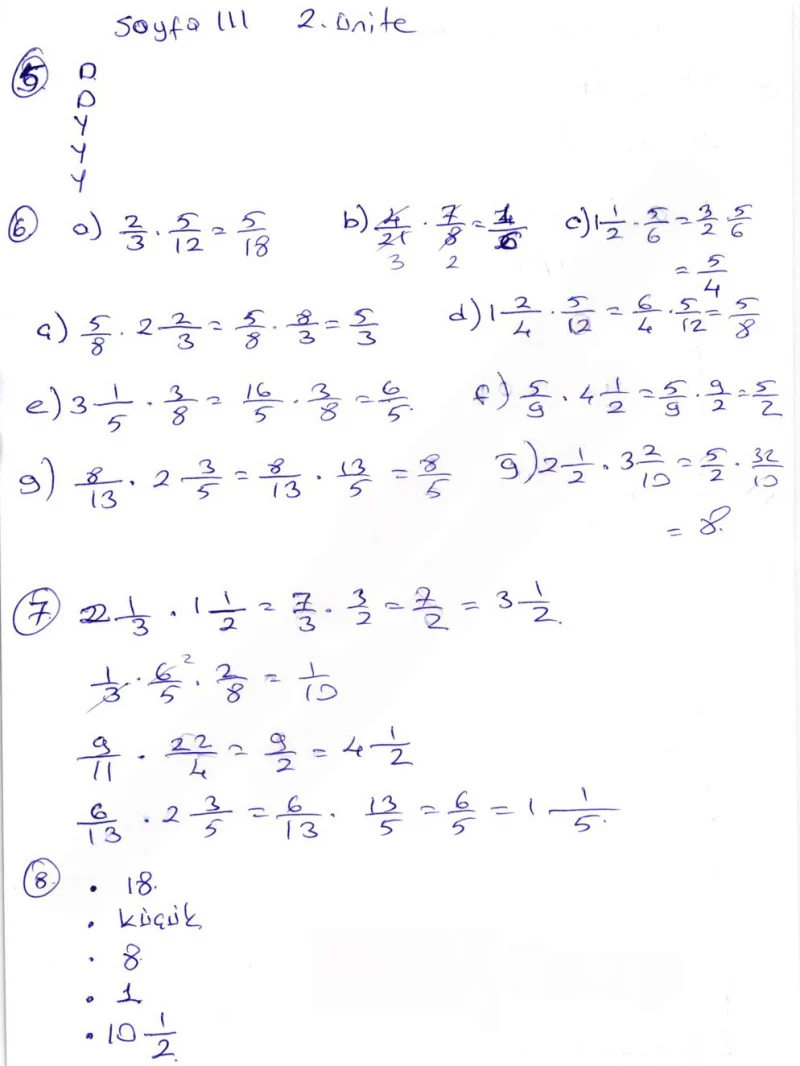 Sayfa 111 2. ünite
5 D
D
Y
Y
Y
6 a) 2/3 · 5/12 = 5/18 b) 4/21 · 7/8 = 1/6 c) 1 1/2 · 5/6 = 3/2 · 5/6
3 2 = 5/4
ç) 5/8 · 2 2/3 = 5/8 · 8/3 = 5/3 d) 1 2/4 · 5/12 = 6/4 · 5/12 = 5/8
e) 3 1/5 · 3/8 = 16/5 · 3/8 = 6/5 f) 5/9 · 4 1/2 = 5/9 · 9/2 = 5/2
g) 8/13 · 2 3/5 = 8/13 · 13/5 = 8/5 ğ) 2 1/2 · 3 2/10 = 5/2 · 32/10
= 8
7 2 1/3 · 1 1/2 = 7/3 · 3/2 = 7/2 = 3 1/2
1/3 · 6/5 2 · 2/8 = 1/10
9/11 · 22/4 = 9/2 = 4 1/2
6/13 · 2 3/5 = 6/13 · 13/5 = 6/5 = 1 1/5
8 • 18
• küçük
• 8
• 1
• 10 1/2